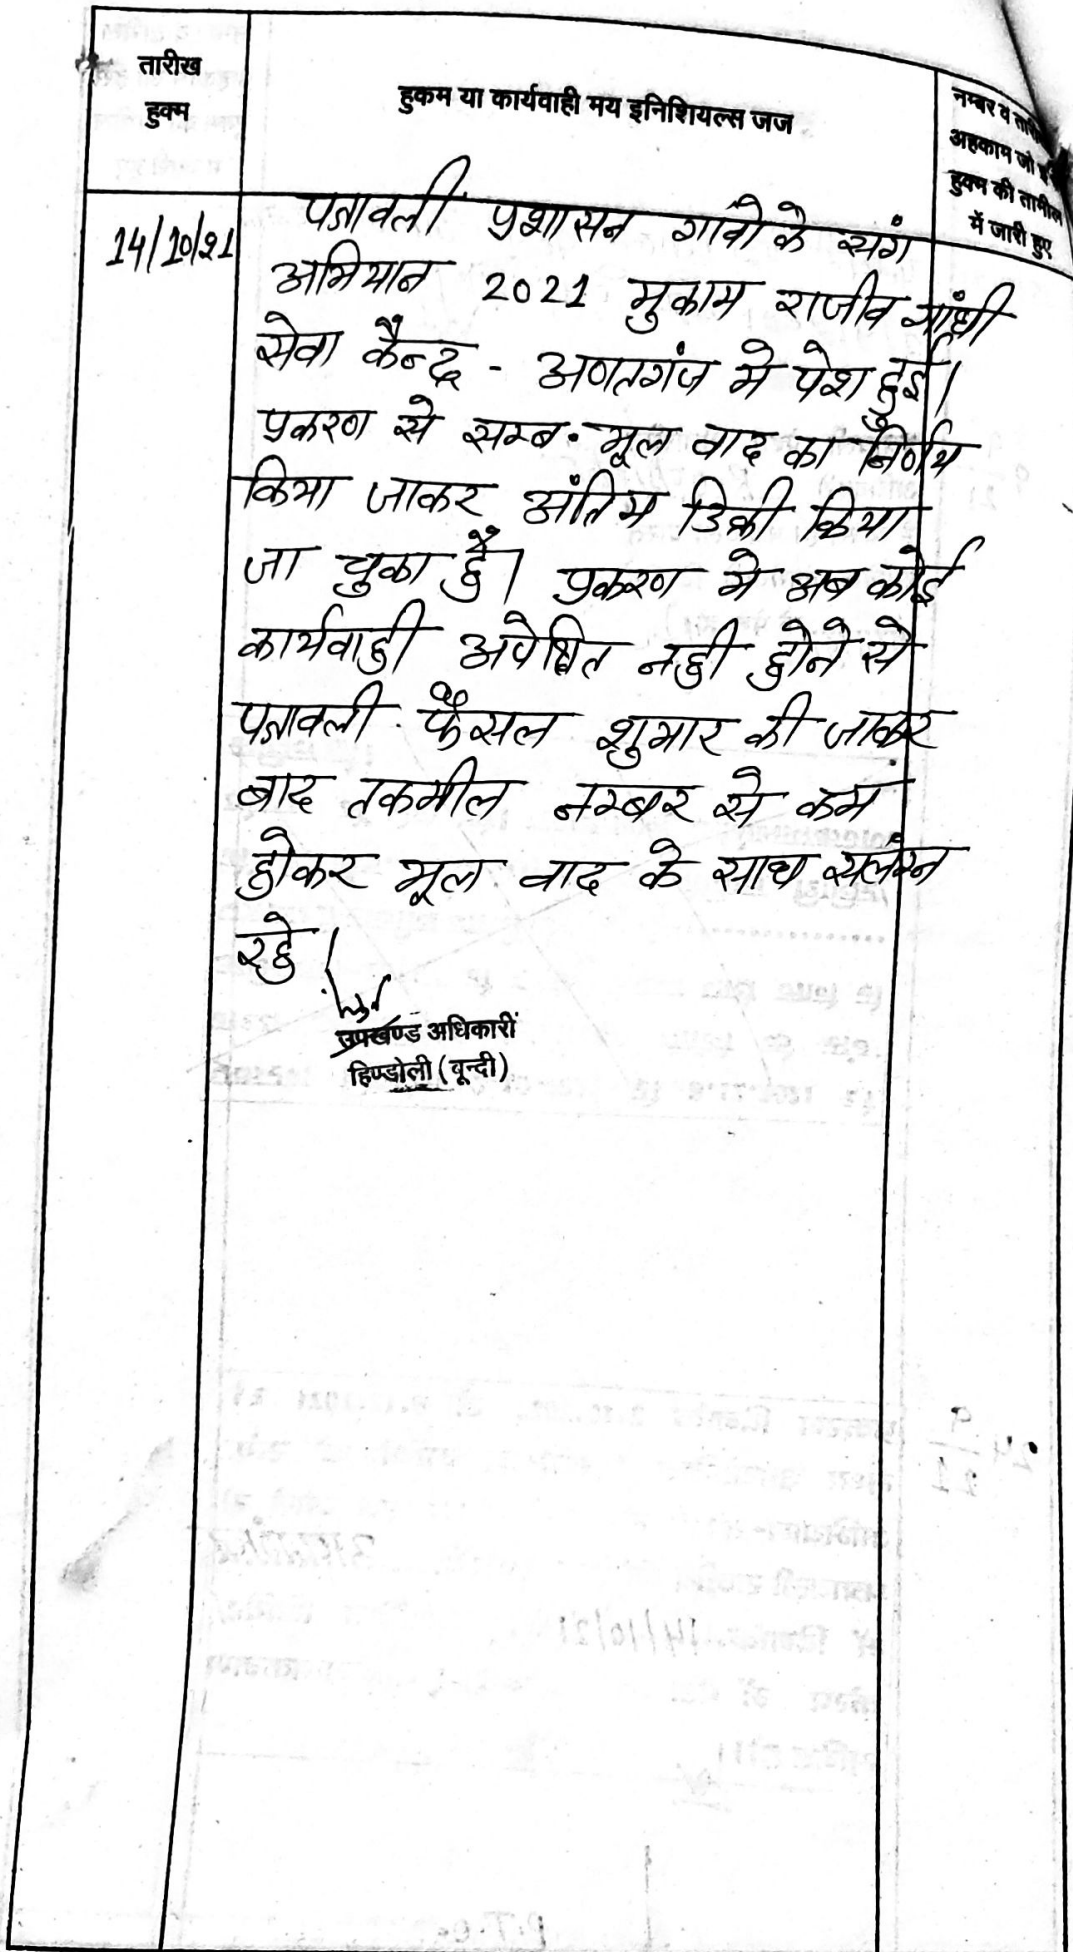 तारीख
हुक्म
हुकम या कार्यवाही मय इनिशियल्स जज
नम्बर व
अहकाम जो
हुक्म की तामील
में जारी हुए
14/10/21
पत्रावली प्रशासन गांवो के संग
अभियान 2021 मुकाम राजीव गांधी
सेवा कैन्द्र - अणतगंज मे पेश हुई।
प्रकरण से सम्ब. मूल वाद का निर्णय
किया जाकर अंतिम डिक्री किया
जा चुका है। प्रकरण मे अब कोई
कार्यवाही अपेक्षित नही होने से
पत्रावली फैसल शुमार की जाकर
बाद तकमील नम्बर से कम
होकर मूल वाद के साथ सलंग्न
रहे।
उपखण्ड अधिकारी
हिण्डोली (बून्दी)